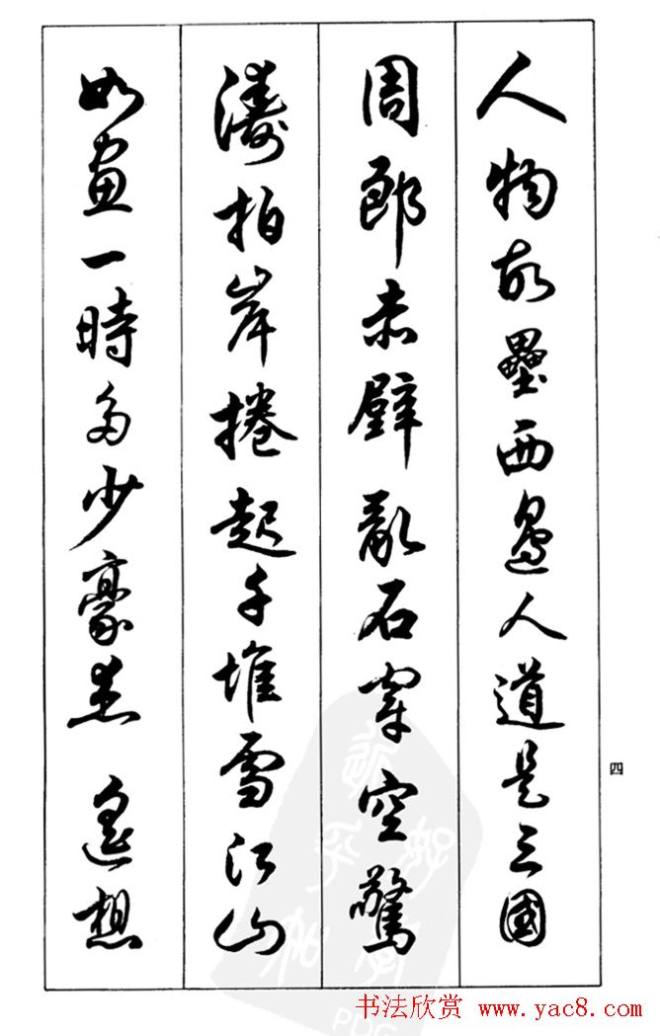 人物故壘西邊人道是三國
周郎赤壁亂石穿空驚
濤拍岸捲起千堆雪江山
如畫一時多少豪杰遙想
四
书法欣赏 www.yac8.com